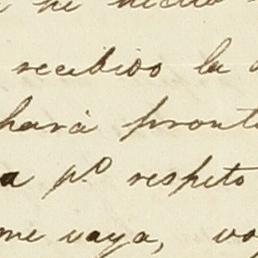 he
recibido la
hará pronto
a p.º respeto
me vaya, vo